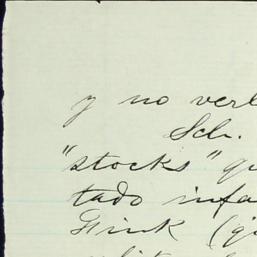 y no verl
Sch.
"stocks" qu
tado infa
Fink (qu